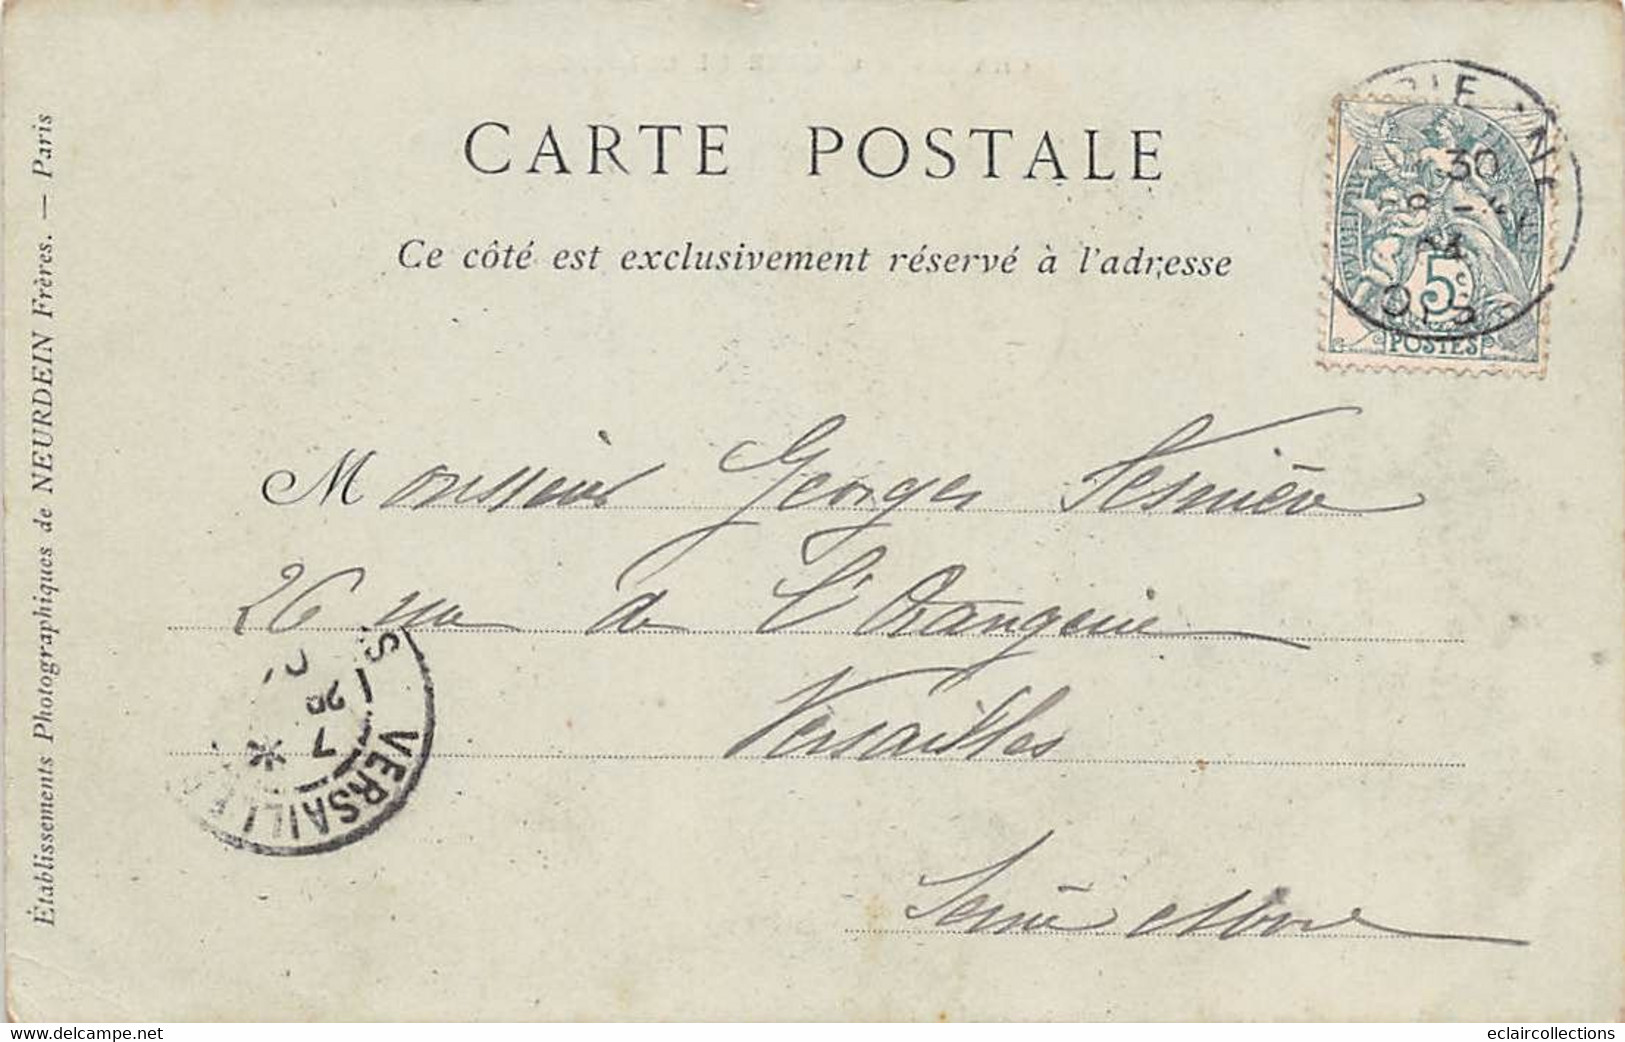 CARTE POSTALE
Ce côté est exclusivement réservé à l'adresse
Établissements Photographiques de NEURDEIN Frères. — Paris
30
5
POSTES
Monsieur Georges
26 rue de l'Orangerie
Versailles
Seine et Oise
VERSAILLES
7
www.delcampe.net
eclaircollections